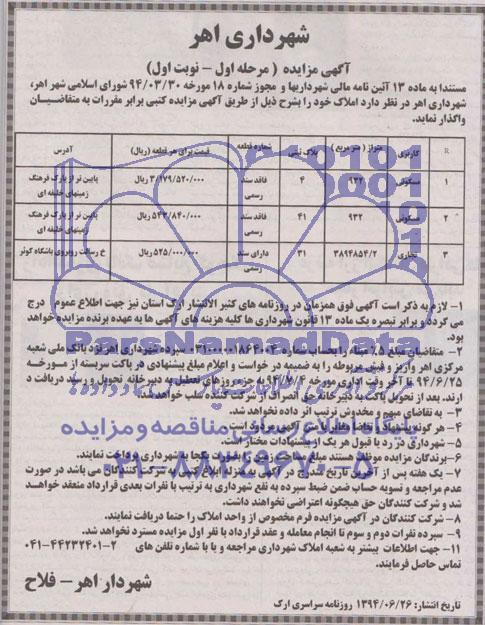 شهرداری اهر
آگهی مزایده ( مرحله اول - نوبت اول)
مستندا به ماده ۱۳ آئین نامه مالی شهرداریها و مجوز شماره ۱۸ مورخه ۹۴/۰۳/۳۰ شورای اسلامی شهر اهر،
شهرداری اهر در نظر دارد املاک خود را بشرح ذیل از طریق آگهی مزایده کتبی برابر مقررات به متقاضیان
واگذار نماید.
R کاربری متراژ ( متر مربع ) پلاک ثبتی شماره قطعه قیمت برای هر قطعه (ریال) آدرس
۱ مسکونی ۹۳۲ ۴ فاقد سند رسمی ریال پایین تر از پارک فرهنگ زمینهای خلیفه ای
۲ مسکونی ۹۳۲ ۴۱ فاقد سند رسمی ریال پایین تر از پارک فرهنگ زمینهای خلیفه ای
۳ تجاری ۳۱ دارای سند رسمی ۵۲۵/۰۰۰/۰۰۰ ریال خ رسالت روبروی باشگاه کوثر
۱- لازم به ذکر است آگهی فوق همزمان در روزنامه های کثیر الانتشار ارک استان نیز جهت اطلاع عموم درج
می گردد و برابر تبصره یک ماده ۱۳ قانون شهرداری ها کلیه هزینه های آگهی ها به عهده برنده مزایده خواهد
بود.
۲- متقاضیان مبلغ ۵٪ مبنا را بحساب شماره سپرده شهرداری اهر نزد بانک ملی شعبه
مرکزی اهر واریز و فیش مربوطه را به ضمیمه در خواست و اعلام مبلغ پیشنهادی در پاکت سربسته از مورخه
۹۴/۶/۲۵ تا آخر وقت اداری مورخه به جزء روزهای تعطیل به دبیرخانه تحویل و رسید دریافت د
ارند. بعد از تحویل پاکت به دبیرخانه حق انصراف از شرکت کننده سلب خواهد شد.
۳- به تقاضای مبهم و مخدوش ترتیب اثر داده نخواهد شد.
۴- هر گونه پیشنهاد و تقاضا مغایر با متن آگهی مردود است.
۵- شهرداری در رد یا قبول هر یک از پیشنهادات مختار است.
۶- برندگان مزایده موظف هستند مبلغ یکجا به شهرداری پرداخت نمایند.
۷- یک هفته پس از آخرین تاریخ مندرج در آگهی به منزله ابلاغ کتبی به شرکت کنندگان می باشد در صورت
عدم مراجعه و تسویه حساب ضمن ضبط سپرده به نفع شهرداری به ترتیب با نفرات بعدی قرارداد منعقد خواهد
شد و شرکت کنندگان حق هیچگونه اعتراضی نخواهند داشت.
۸- شرکت کنندگان در آگهی مزایده فرم مخصوص از واحد املاک را حتما دریافت نمایند.
۹- سپرده نفرات دوم و سوم تا انجام معامله و عقد قرارداد با نفر اول مزایده مسترد نخواهد شد.
۱۱- جهت اطلاعات بیشتر به شعبه املاک شهرداری مراجعه و یا با شماره تلفن های ۲-۰۴۱-۴۴۲۳۲۴۰۱
تماس حاصل فرمایند.
شهردار اهر- فلاح
تاریخ انتشار: ۱۳۹۴/۰۶/۲۶ روزنامه سراسری ارک
ParsNamadData
پایگاه اطلاع رسانی مناقصه و مزایده
۰۲۱-۸۸۳۴۹۶۷۰-۵